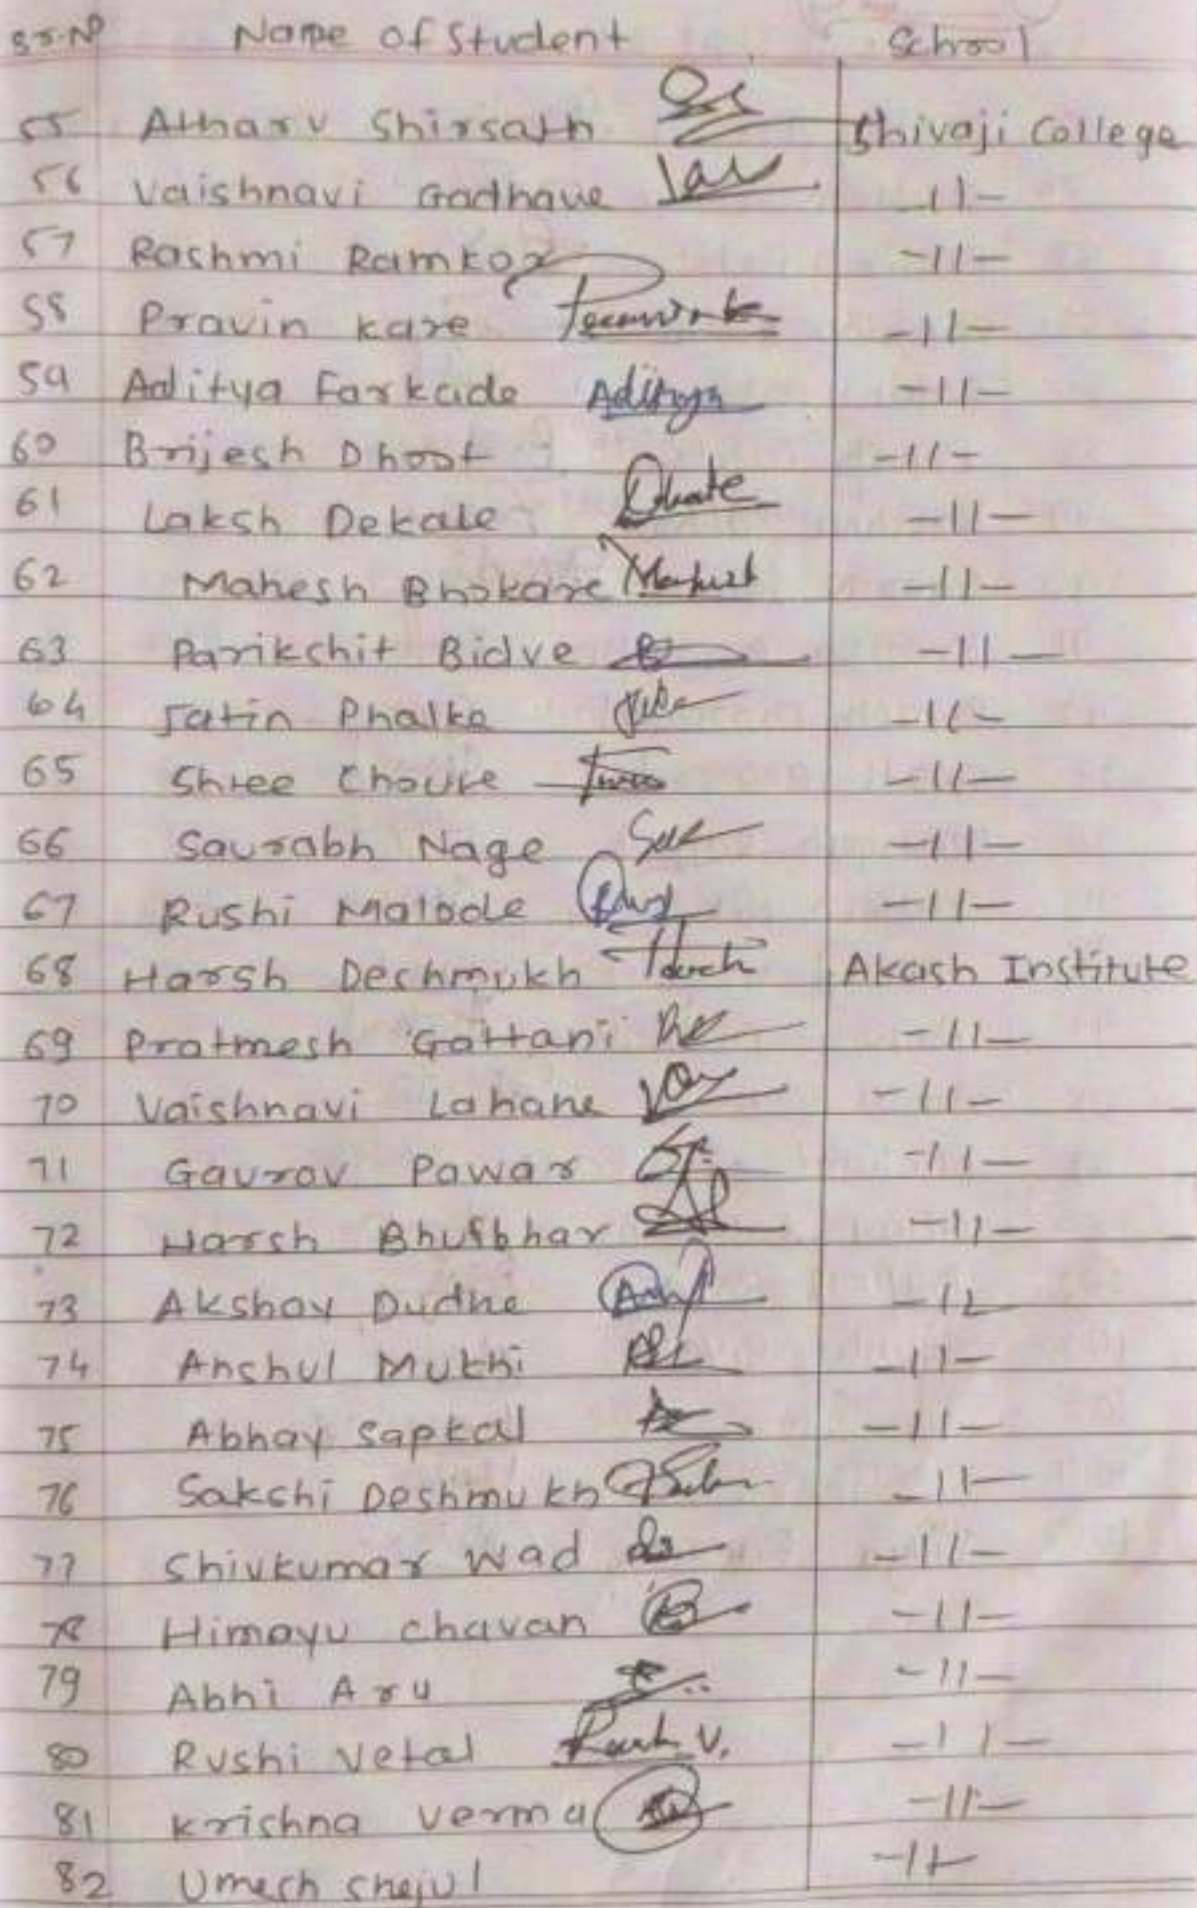 Sr.No Name of Student School
55 Atharv Shirsath Shivaji College
56 Vaishnavi Gadhave -11-
57 Rashmi Ramkor -11-
58 Pravin Kare -11-
59 Aditya Farkade Aditya -11-
60 Brijesh Dhoot -11-
61 Laksh Dekale -11-
62 Mahesh Bhokare -11-
63 Parikchit Bidve -11-
64 Jatin Phalke -11-
65 Shree Choure -11-
66 Saurabh Nage -11-
67 Rushi Malode -11-
68 Harsh Deshmukh Akash Institute
69 Pratmesh Gattani -11-
70 Vaishnavi Lahane -11-
71 Gaurav Pawar -11-
72 Harsh -11-
73 Akshay Dudhe -11-
74 Anshul Mukhi -11-
75 Abhay Sapkal -11-
76 Sakshi Deshmukh -11-
77 Shivkumar Wad -11-
78 Himayu Chavan -11-
79 Abhi Aru -11-
80 Rushi Vetal -11-
81 Krishna Verma -11-
82 Umesh Shejul -11-